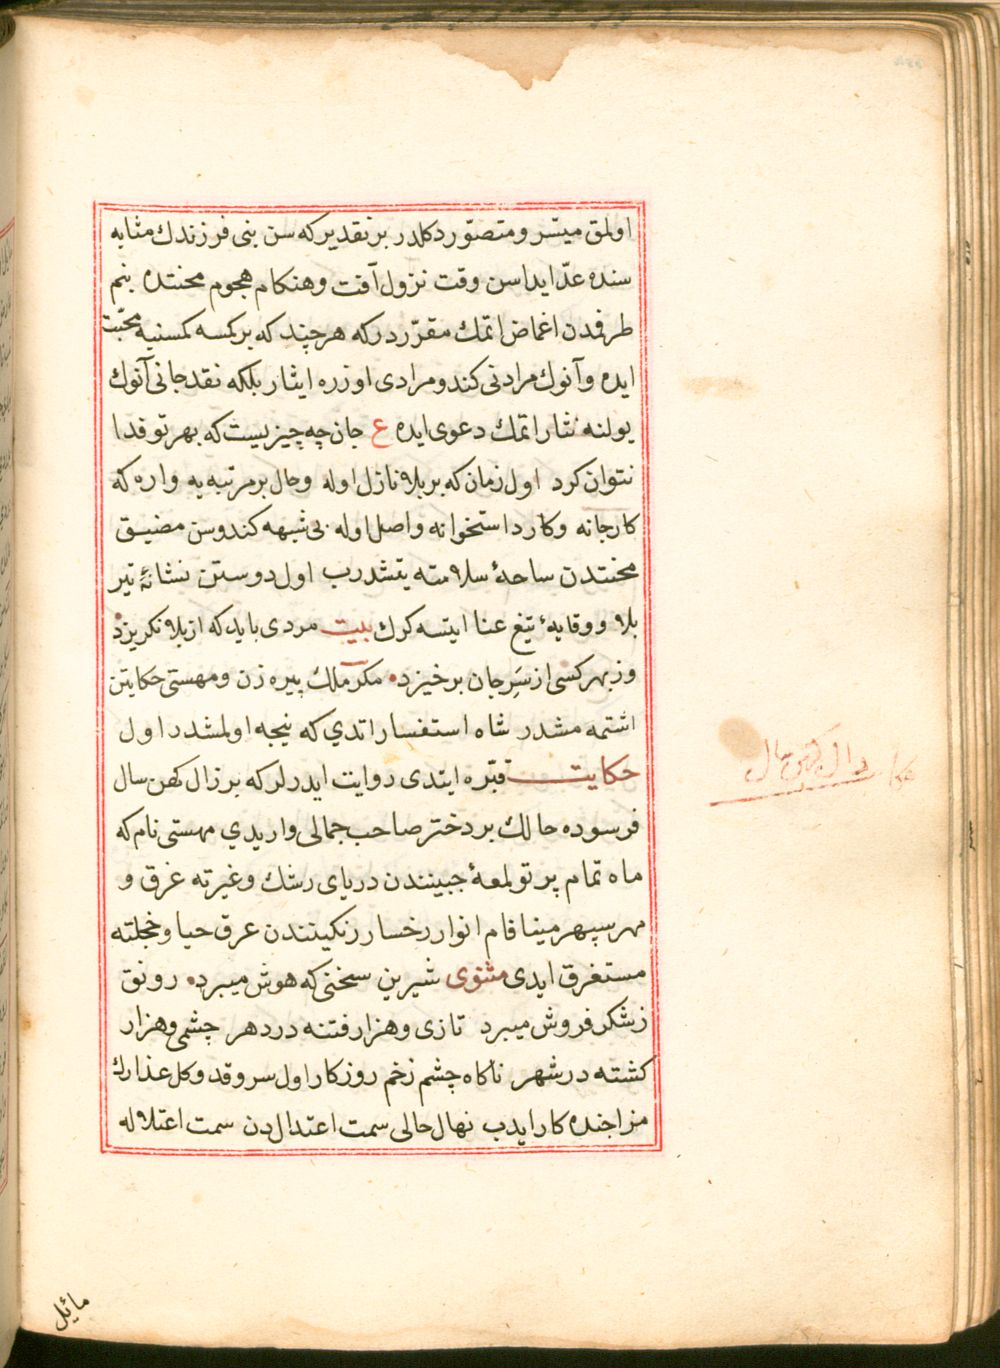 اولمق میسّر و متصوّر دكلدر بر تقدیر كه سن بنی فرزندك مثابه
سنده عدّ ایداسن وقت نزول آفت و هنكام هجوم محنتده بنم
طرفدن اغماض اتمك مقرّر در كه هر چند كه بر كمسه كمسنیه محبّت
ایده و آنوك مرادنی كندو مرادی اوزره ایثار بلكه نقد جانی آنوك
یولنه نثار اتمك دعوی ایده ع جان چه چیزیست كه بهر تو فدا
نتوان كرد اول زمان كه بر بلا نازل اوله و حال بر مرتبه یه واره كه
كار جانه و كارد استخوانه واصل اوله بی شبهه كندوسن مضیق
محنتدن ساحهٔ سلامته یتشدرب اول دوستن نشانهٔ تیر
بلا و وقایهٔ تیغ عنا ایتسه كرك بیت مردی باید كه از بلا نكریزد
وز بهر كسی از سَرِ جان برخیزد مكر ملك پیره زن و مهستی حكایتن
اشتمه مشدر شاه استفسار اتدي كه نیجه اولمشدر اول
حكایت قبّره ایتدی روایت ایدرلر كه بر زال كهن سال
فرسوده حالك بر دختر صاحب جمالی واریدي مهستی نام كه
ماه تمام پرتو لمعهٔ جبینندن دریای رشك و غیرته غرق و
مهر سپهر مینا فام انوار رخسار رنكینندن عرق حیا و خجلته
مستغرق ایدی مثنوی شیرین سخنی كه هوش میبرد رونق
زشكر فروش میبرد تازی و هزار فتنه در دهر چشمی و هزار
كشته در شهر ناكاه چشم زخم روزكار اول سرو قد و كل عذارك
مزاجنده كار ایدب نهال حالی سمت اعتدال دن سمت اعتلاله
زال كهن سال
مائیل